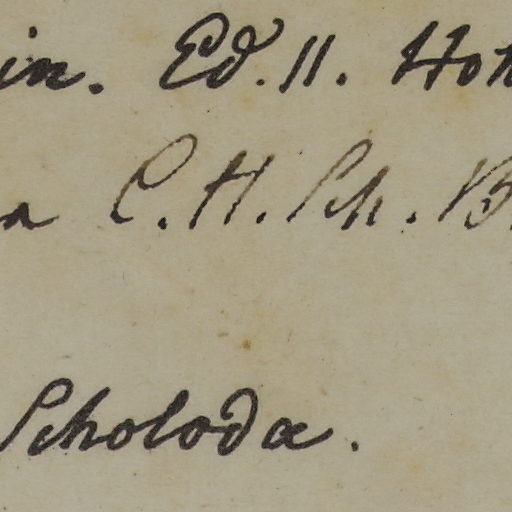 in. Ed. 11. Hot
a C. H. Sch. B.
Scholoda.